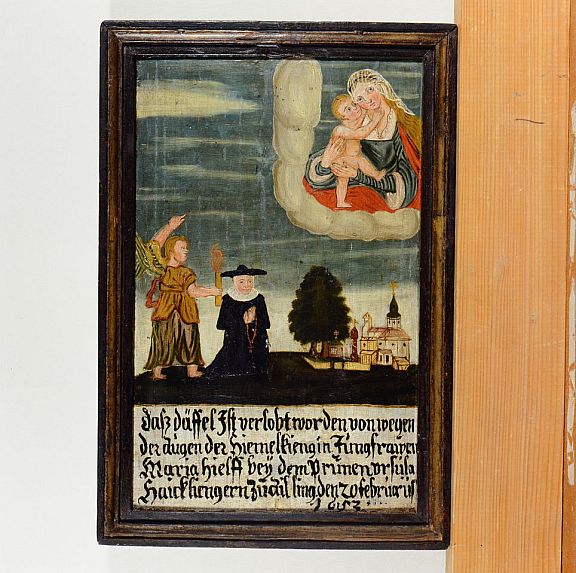 daß däffel Ist verlobt worden von wegen
der augen der Hiemelkiengin Jungfrawen
Maria hielff bey dem Prünen vrsula
Haicklengern Zu ling, den 20 februarij
1653